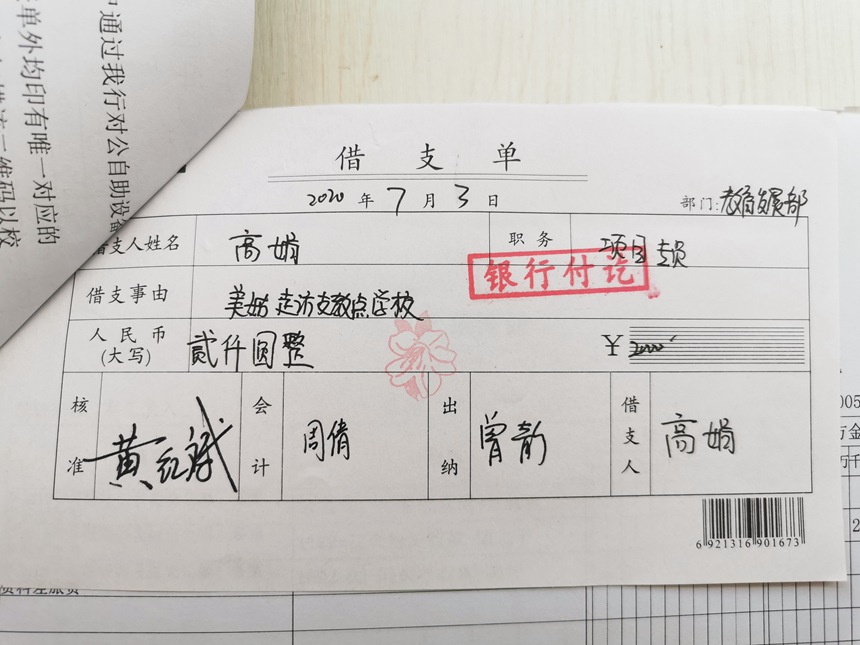 中通过我行对公自助设备
单外均印有唯一对应的
二维码以校
借 支 单
2020 年 7 月 3 日 部门:教育发展部
借支人姓名 高娟 职务 项目专员
银行付讫
借支事由 美姑走访支教点学校
人民币(大写) 贰仟圆整 ¥2000
核准 会计 周倩 出纳 曾韵 借支人 高娟
6 921316 901673